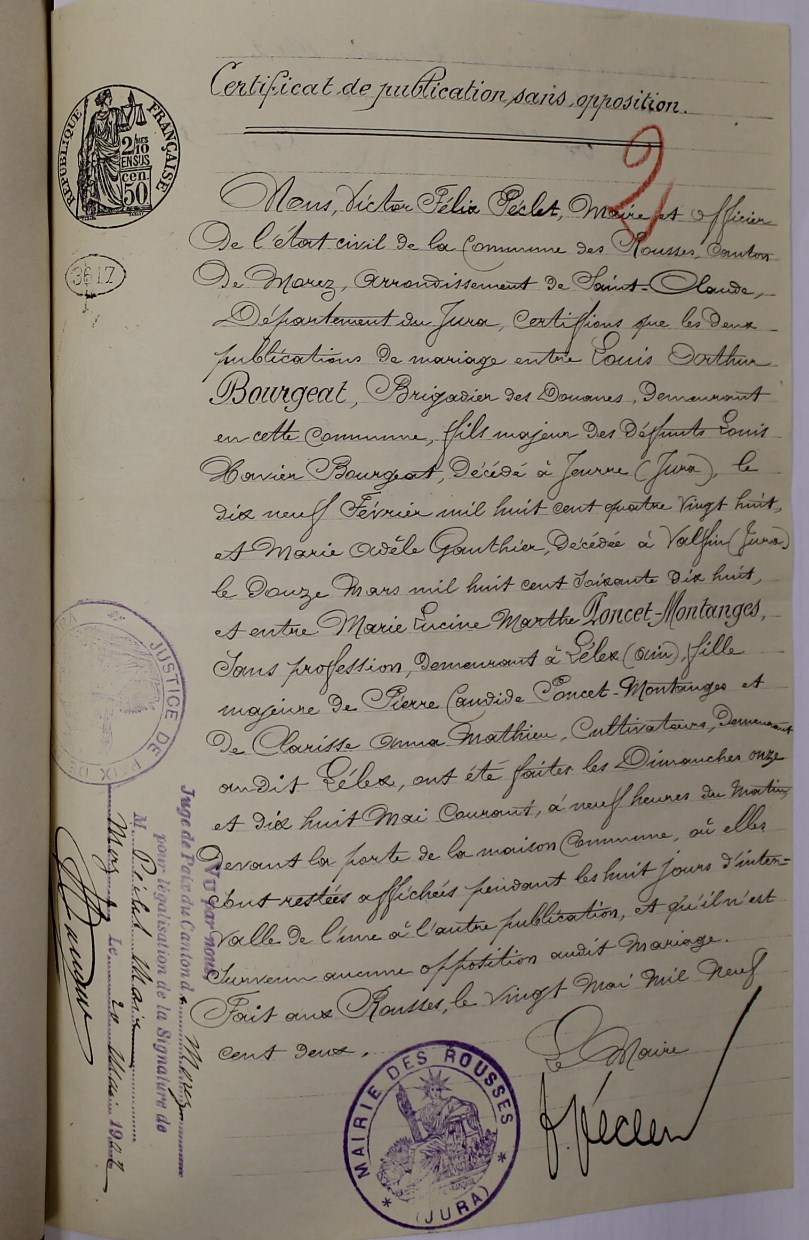 Certificat de publication sans opposition.
2
RÉPUBLIQUE FRANÇAISE
2/10 EN SUS
50 cen.
3617
Nous, Victor Félix Péclet, Maire et officier
de l'état civil de la Commune des Rousses, canton
de Morez, arrondissement de Saint-Claude,
Département du Jura, certifions que les deux
publications de mariage entre Louis Arthur
Bourgeat, Brigadier des Douanes, demeurant
en cette commune, fils majeur des défunts Louis
Xavier Bourgeat, décédé à Jeurre (Jura), le
dix neuf Février mil huit cent quatre vingt huit,
et Marie Adèle Gauthier, décédée à Valfin (Jura)
le douze Mars mil huit cent soixante dix huit,
et entre Marie Lucine Marthe Poncet-Montanges,
sans profession, demeurant à Lélex (Ain), fille
majeure de Pierre Candide Poncet-Montanges et
de Clarisse Anna Mathieu, Cultivateurs, demeurant
audit Lélex, ont été faites les Dimanches onze
et dix huit Mai courant, à neuf heures du Matin,
devant la porte de la maison commune, où elles
sont restées affichées pendant les huit jours d'inter=
valle de l'une à l'autre publication, et qu'il n'est
survenu aucune opposition audit Mariage.
Fait aux Rousses, le vingt Mai mil neuf
cent deux.
Le Maire
F. Péclet
MAIRIE DES ROUSSES
(JURA)
JUSTICE DE PAIX DE
Vu par nous
Juge de Paix du Canton d Morez
pour légalisation de la Signature de
M. Péclet Maire
Morez Le 20 Mai 1902